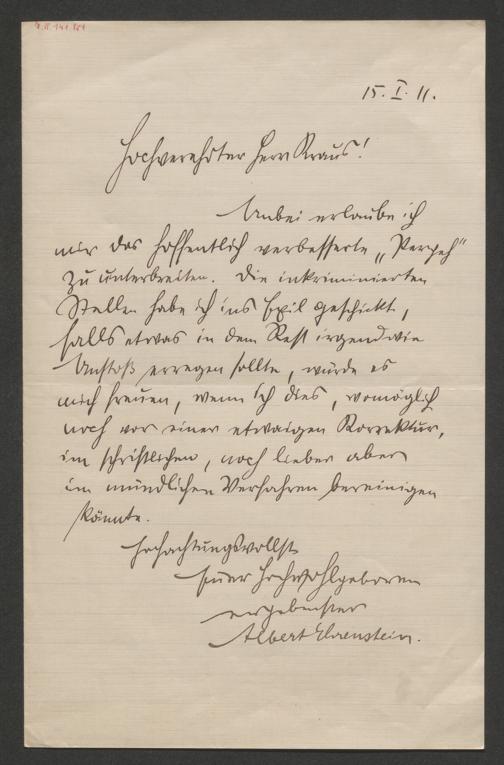 15. I. 11.
Hochverehrter Herr Kraus!
Anbei erlaube ich
mir das hoffentlich verbesserte
zu unterbreiten. Die inkriminierten
Stellen habe ich ins Exil geschickt,
falls etwas in dem Rest irgendwie
Anstoß erregen sollte, würde es
mich freuen, wenn ich dies, womöglich
noch vor einer etwaigen Korrektur,
im schriftlichen, noch lieber aber
im mündlichen Verfahren bereinigen
könnte.
Hochachtungsvollst
Euer Hochwohlgeboren
ergebenster
Albert Ehrenstein.